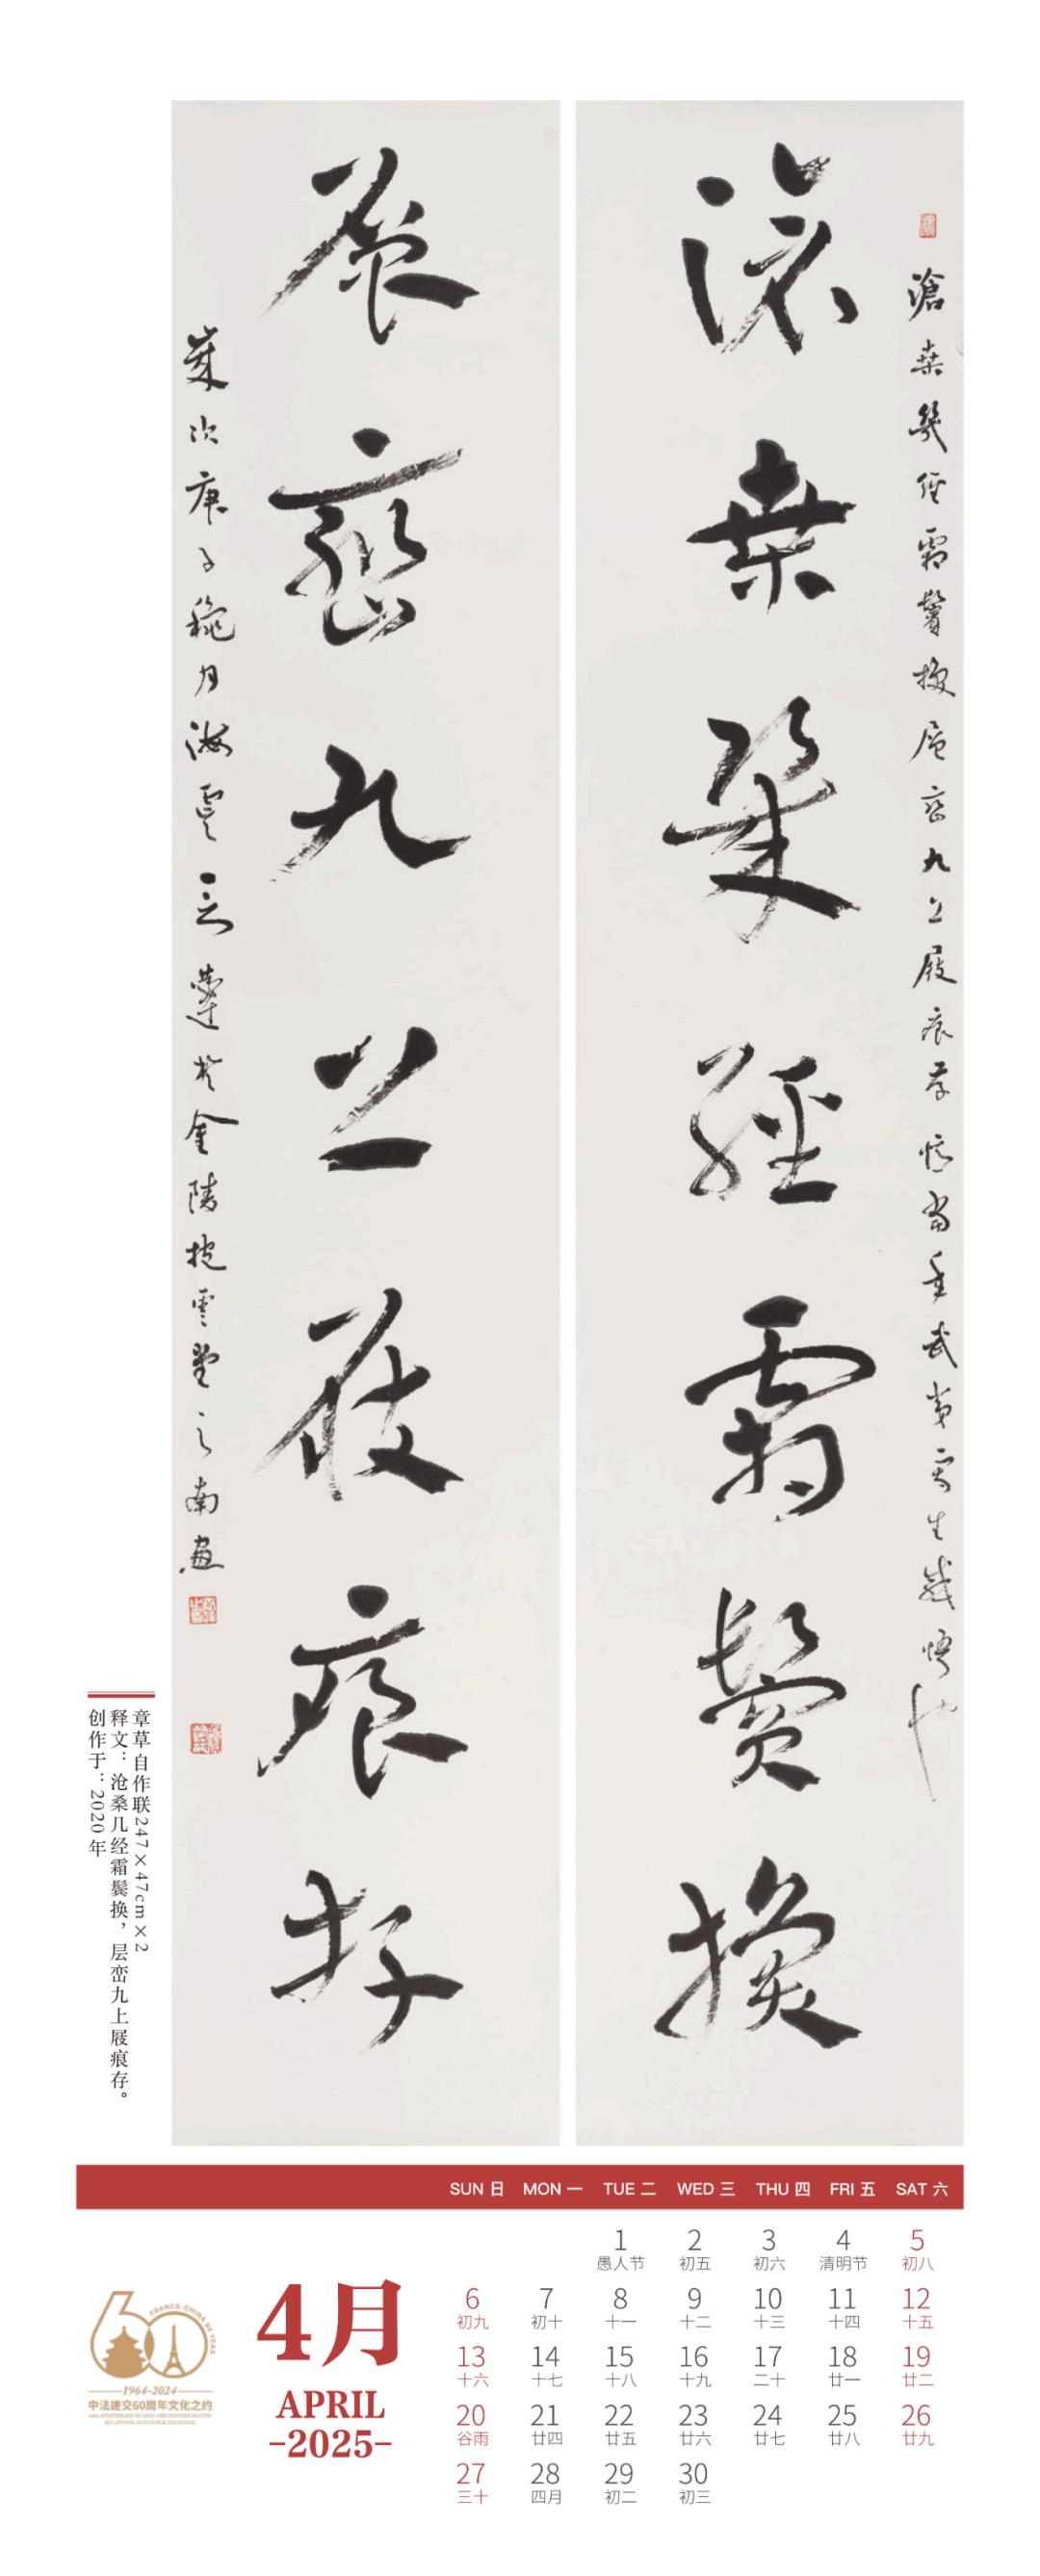 滄桑幾經霜鬢換層巒九上屐痕存 憶當年武夷寫生感悟也
滄桑幾經霜鬢換
層巒九上屐痕存
歲次庚子穐月海雲 於金陵 雲堂之南
章草自作联247×47cm×2
释文：沧桑几经霜鬓换，层峦九上屐痕存。
创作于：2020年
SUN 日 MON 一 TUE 二 WED 三 THU 四 FRI 五 SAT 六
1 2 3 4 5
愚人节 初五 初六 清明节 初八
6 7 8 9 10 11 12
初九 初十 十一 十二 十三 十四 十五
13 14 15 16 17 18 19
十六 十七 十八 十九 二十 廿一 廿二
20 21 22 23 24 25 26
谷雨 廿四 廿五 廿六 廿七 廿八 廿九
27 28 29 30
三十 四月 初二 初三
4月
APRIL
-2025-
60
FRANCE-CHINA 60 YEARS
1964-2024
中法建交60周年文化之约